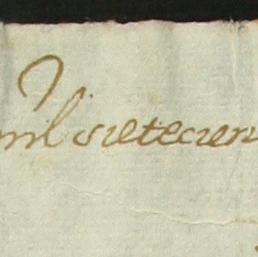 mil setecien